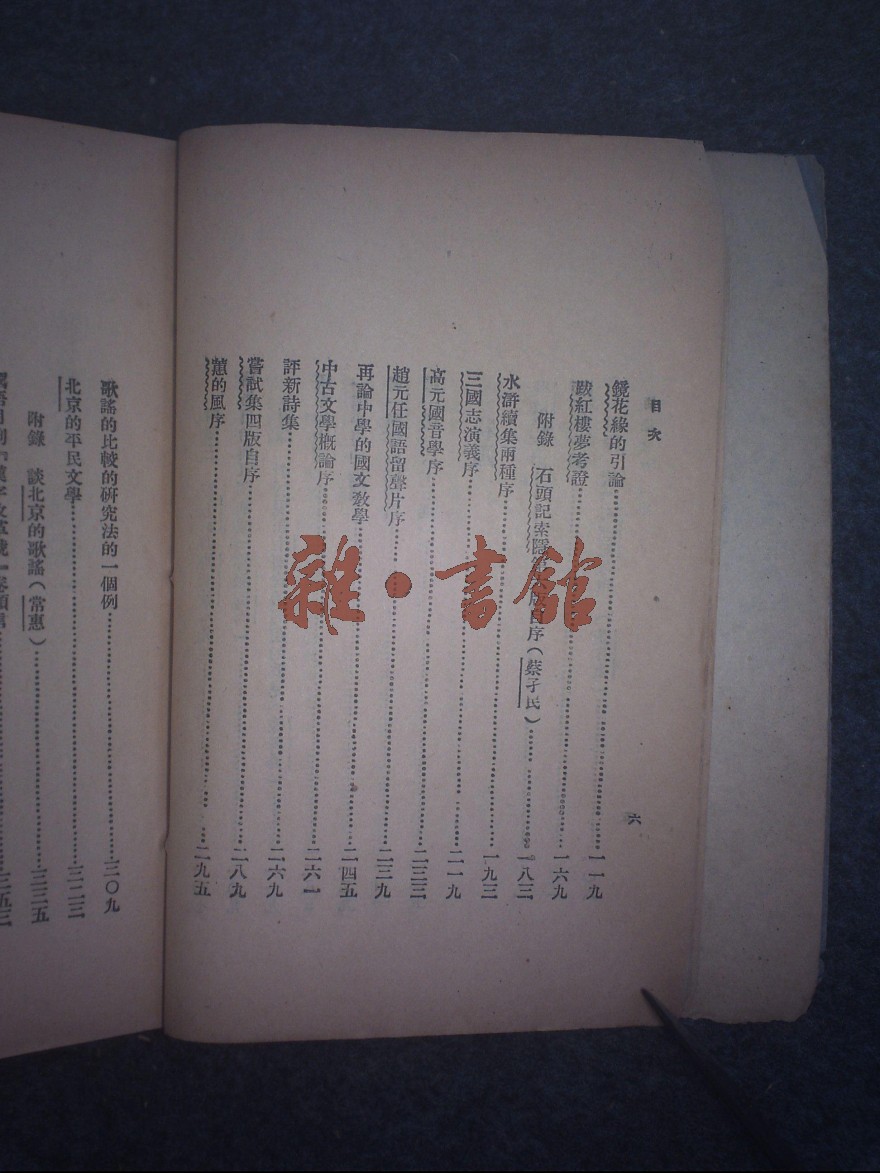 目次
六
鏡花緣的引論……一一九
跋紅樓夢考證……一六九
附錄 石頭記索隱 自序(蔡孑民)……一八三
水滸續集兩種序……一九三
三國志演義序……二一九
高元國音學序……二三三
趙元任國語留聲片序……二三九
再論中學的國文教學……二四五
中古文學概論序……二六一
評新詩集……二六九
嘗試集四版自序……二八九
蕙的風序……二九五
歌謠的比較的研究法的一個例……三〇九
北京的平民文學……三二三
附錄 談北京的歌謠(常惠)……三三五
雜·書館